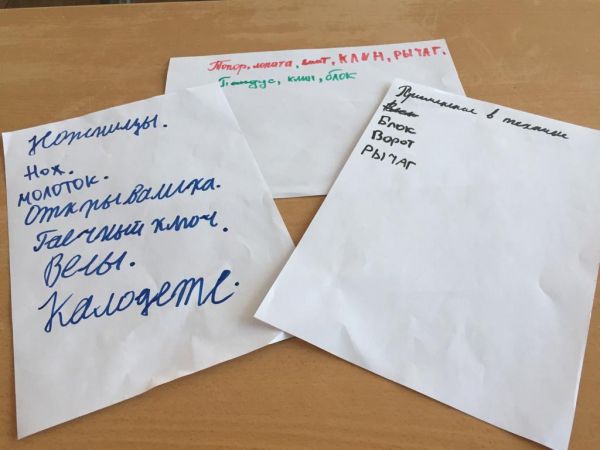 Ножницы.
Нож.
МОЛОТОК.
Открывашка.
Гаечный ключ.
Весы.
Калодеже.
Топор, лопата, винт, КЛИН, РЫЧАГ.
Пандус, клин, блок
Применение в технике
Весы
БЛОК
ВОРОТ
РЫЧАГ